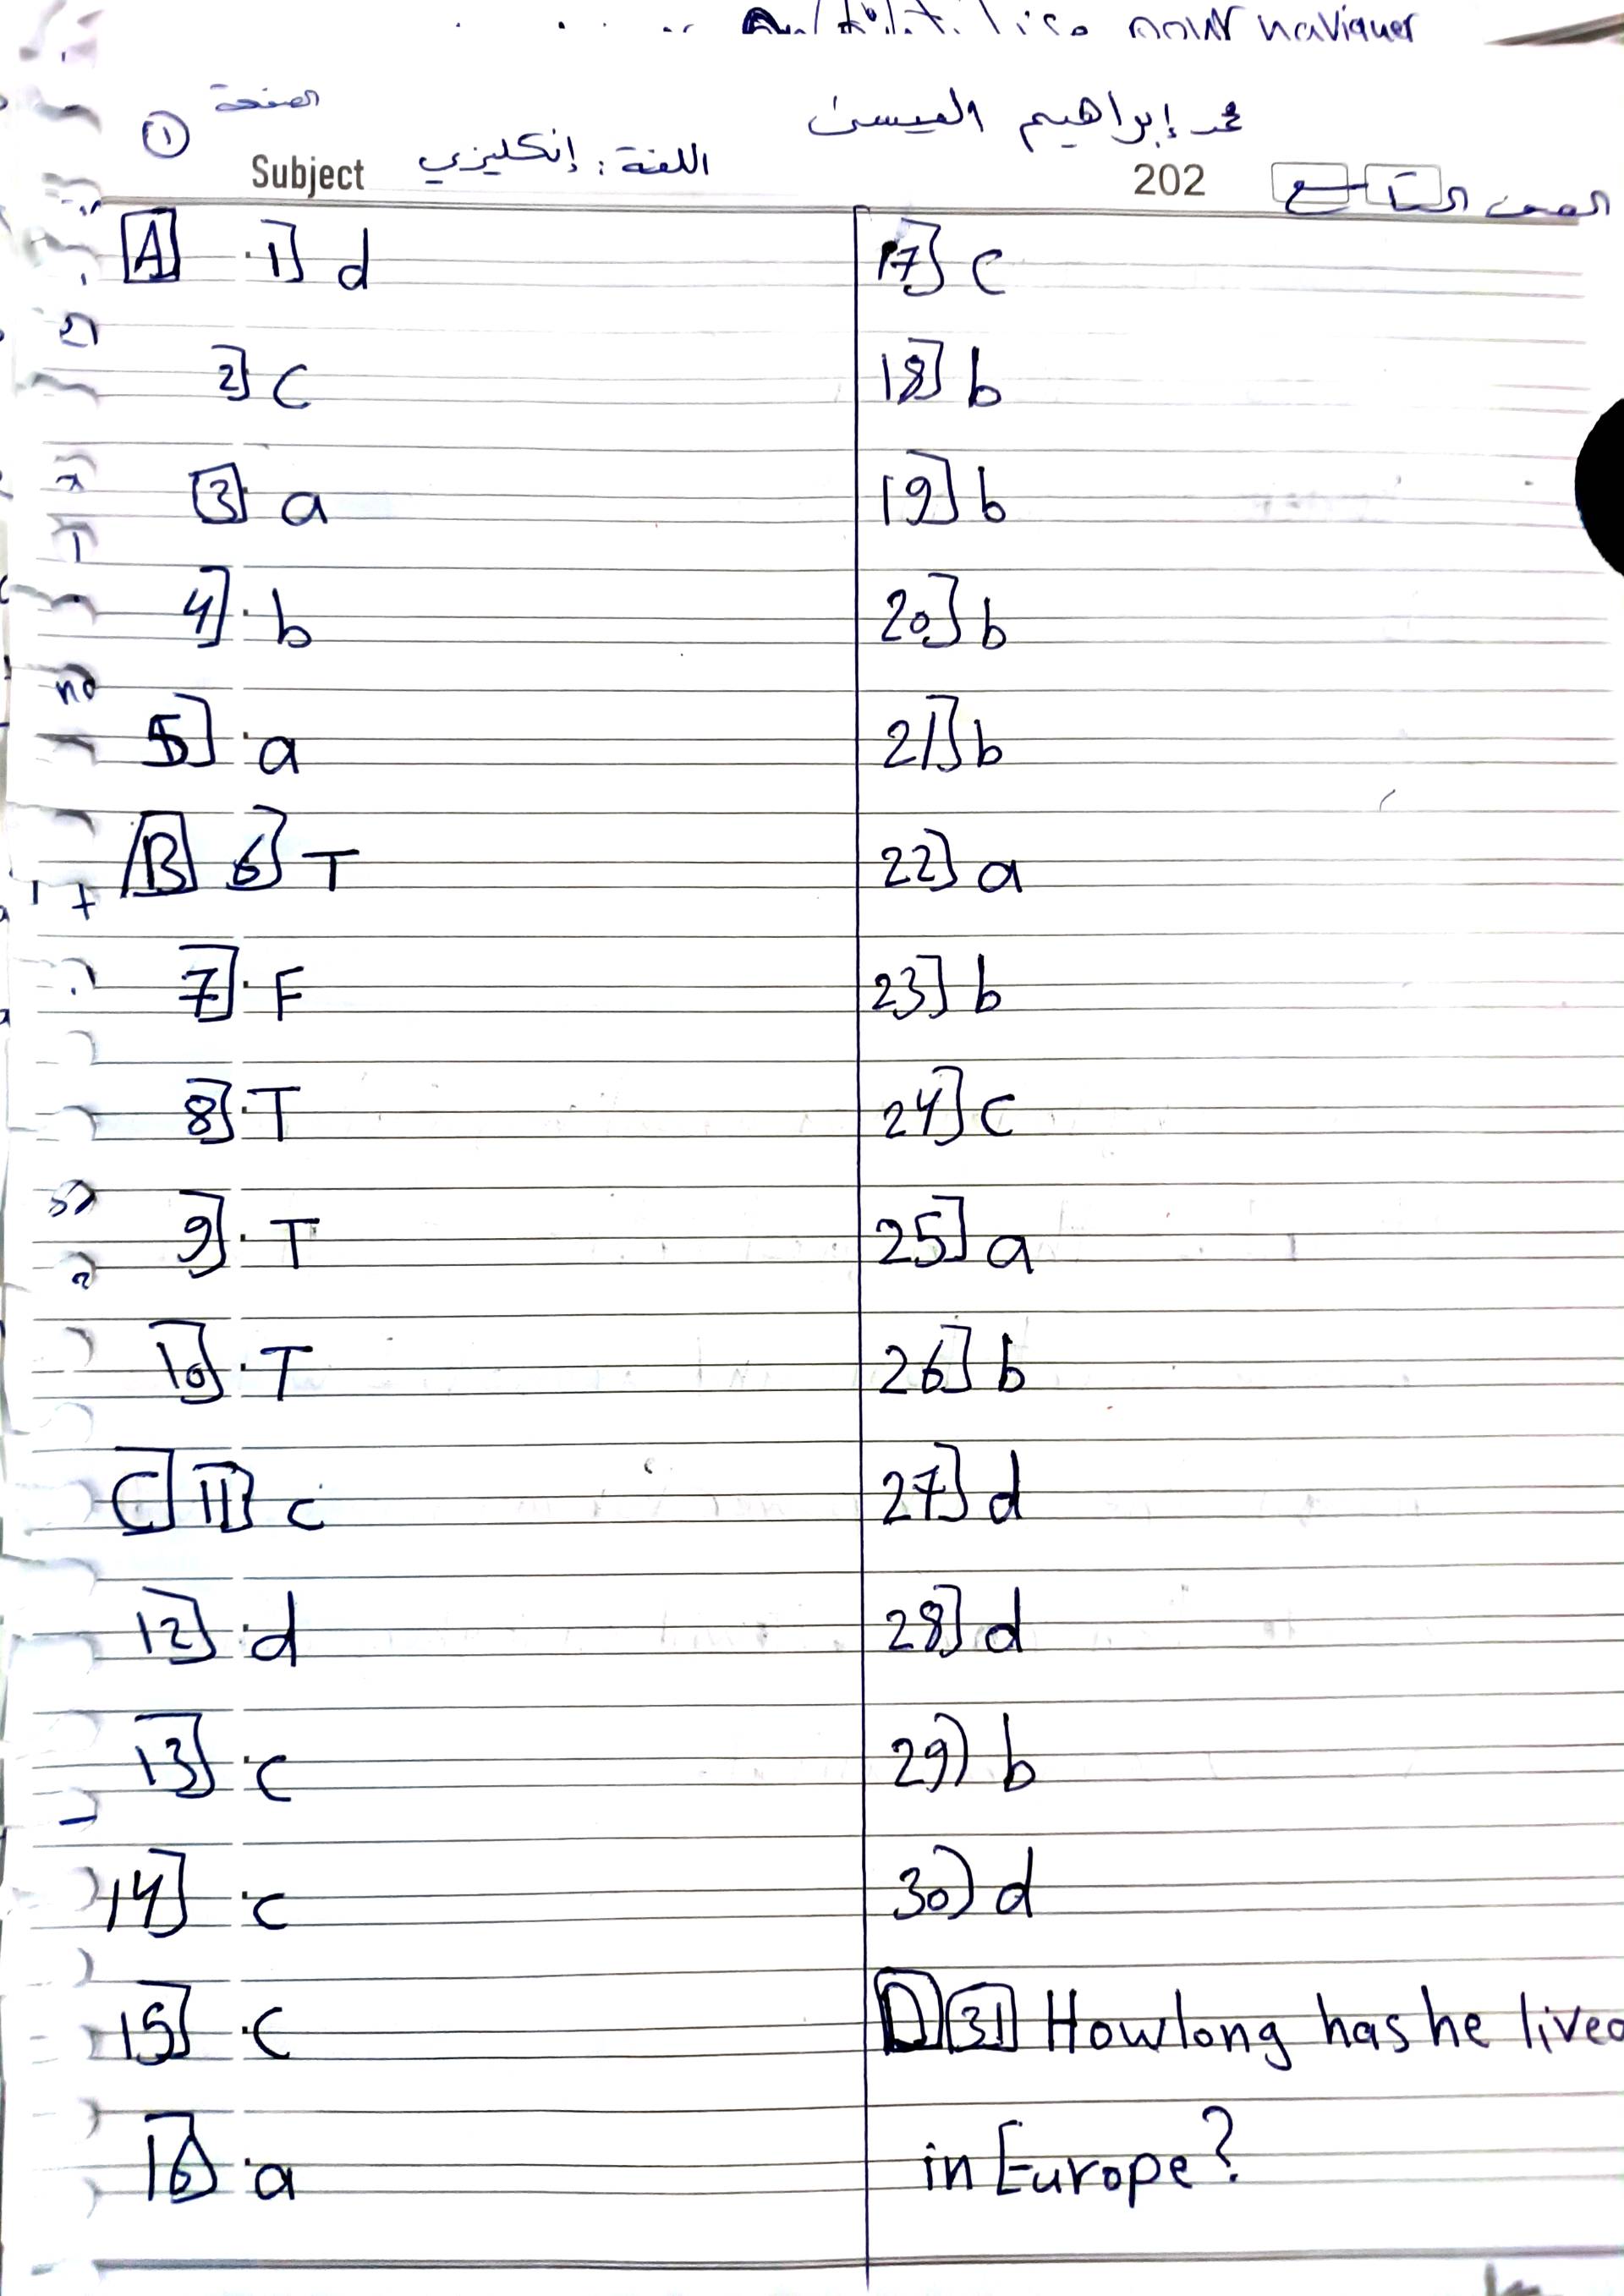 pour naviguer
الصفحة
محمد إبراهيم العيسى
①
اللغة : إنكليزي
Subject
202
الصف التاسع
A 1] d
2] c
3] a
4] b
5] a
B 6] T
7] F
8] T
9] T
10] T
C 11] c
12] d
13] c
14] c
15] c
16] a
17] c
18] b
19] b
20] b
21] b
22] a
23] b
24] c
25] a
26] b
27] d
28] d
29) b
30) d
D 31 How long has he lived
in Europe?